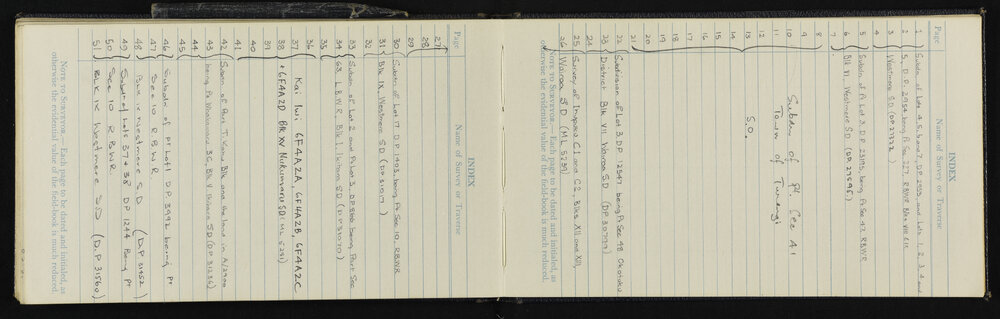 INDEX
Page
Name of Survey or Traverse
1 Subdn. of Lots 4, 5, 6 and 7, D.P. 2953 and Lots 1, 2, 3, 4 and
2 5, D.P. 2954 being Pt Sec 227, RBWR Blks VIII &
3 Westmere SD (DP 27323)
4
5 Subdn of Pt Lot 3 DP 23195, being Pt Sec 47 RBWR
6 Blk VI Westmere SD (DP 27595)
7
8
9
10 Subdn of pt. Sec A1
11 Town of
12
13 S.O.
14
15
16
17
18
19
20
21
22 Subdivision of Lot 3 DP 12547 being Pt Sec 48 Okotuku
23 District Blk VII Wairoa SD (DP 30799)
24
25 Survey of Inupuku C1 and C2, Blks XII and XIII,
26 Wairoa SD (ML 5239)
NOTE TO SURVEYOR.—Each page to be dated and initialed, as
otherwise the evidential value of the field-book is much reduced.
INDEX
Page
Name of Survey or Traverse
27
28
29
30 Subdn of Lot 17 DP 1403, being Pt Sec 10, RBWR
31 Blk IX, Westmere SD (DP 31017)
32
33 Subdn of Lot 2 and Pt Lot 3, DP 866 being Part Sec
34 63 LBWR, Blk I, Ikitara SD (DP 31070)
35
36
37 Kai Iwi 6F4A2A, 6F4A2B, 6F4A2C
38 + 6F4A2D Blk XV Nukumaru SD (ML 5251)
39
40
41
42 Subdn of Part T. Kanu Blk and the land in A/2900
43 being Pt 3G, Blk V Ikitara SD (DP 31236)
44
45
46 Subdn of Pt Lot 1 DP 3992 being Pt
47 Sec 10 RBWR
48 Blk IX Westmere SD (DP 31452)
49 Subdn of Lots 37 & 38 DP 1244 Being Pt
50 Sec 10 RBWR
51 Blk IX Westmere SD (DP 31560)
NOTE TO SURVEYOR.—Each page to be dated and initialed, as
otherwise the evidential value of the field-book is much reduced.